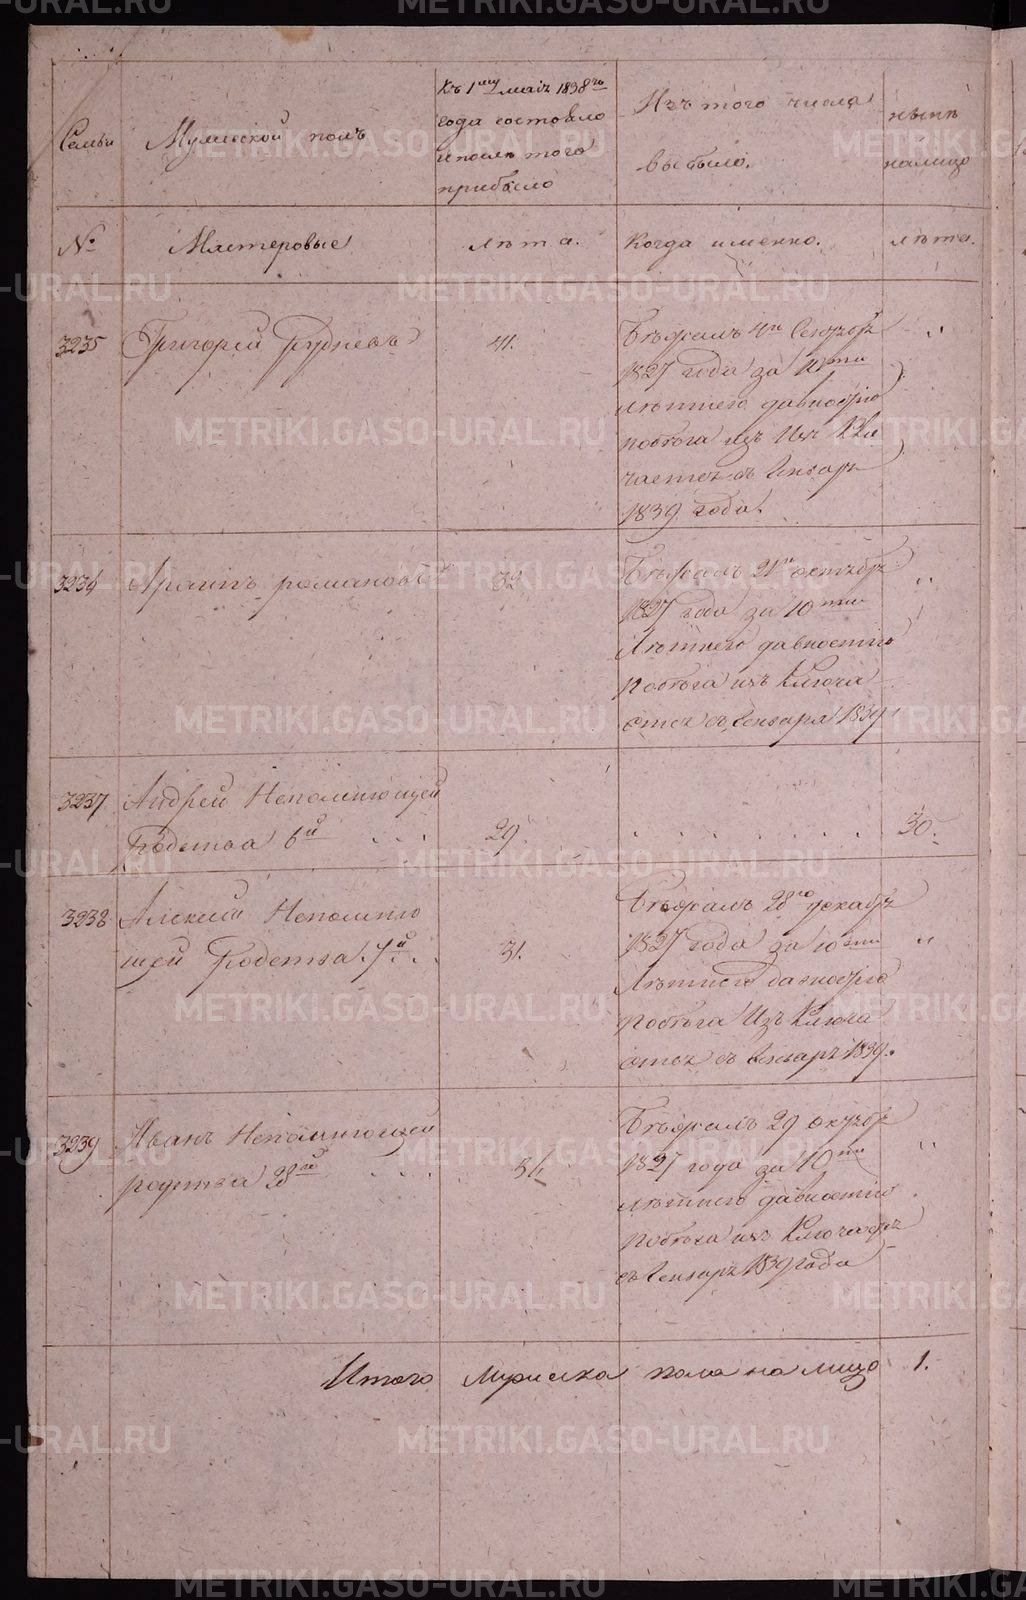 Семьи
Мужеской полъ
Къ 1му маія 1838го
года состояло
и послѣ того
прибыло
Изъ того числа
выбыло.
нынѣ
налицо
№
Мастеровые
лѣта.
Когда именно.
лѣта.
3235
Григорей Рудневъ
41.
Бѣжалъ
1827 года за 10ти
лѣтнею давностію
побѣга изъ
чается съ Генваря
1839 года.
"
3236
романовъ
32
Бѣжалъ 21го октября
1827 года за 10ти
Лѣтнею давностію
побѣга изъ Ключа
ется съ Генваря 1839
"
3237
Андрей Непомнющей
Родства 6й
29
30.
3238
Алексей Непомню
щей Родства 7й
31.
Бѣжалъ 28го декабря
1827 года за 10ти
Лѣтнею давностію
побѣга Изъ Ключа
ется съ Генваря 1839.
"
3239
Иванъ Непомнющей
родства 28й
Бѣжалъ 29 октября
1827 года за 10ти
лѣтнею давностію
побѣга изъ Ключается
съ Генваря 1839 года
"
Итого Мужеска пола на лицо 1.
METRIKI.GASO-URAL.RU